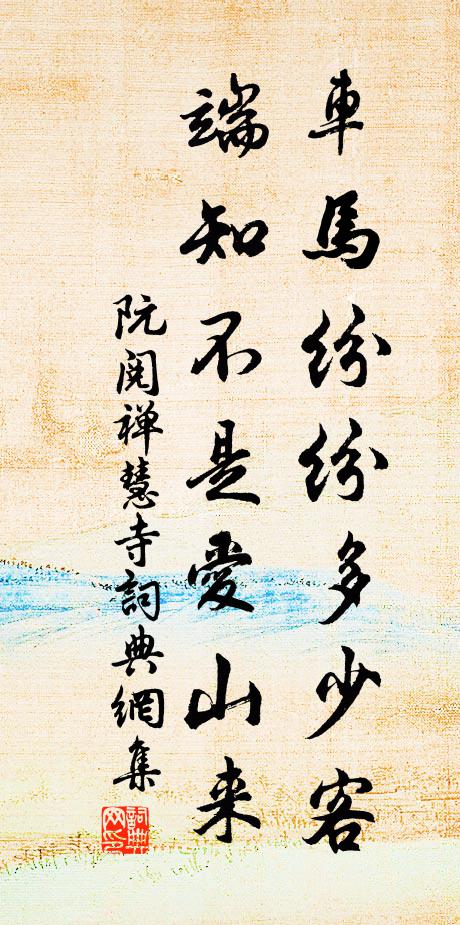 車馬紛紛多少客
端知不是愛山来
阮閱禅慧寺詞典網集
詞典網印